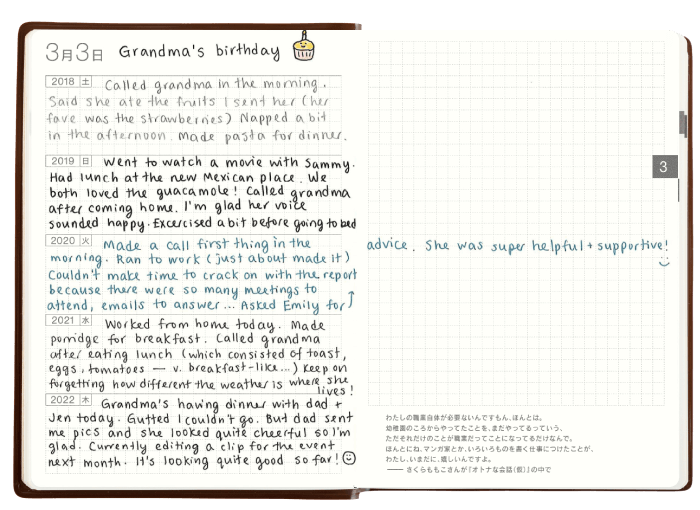 3月3日 Grandma's birthday
2018 土 Called grandma in the morning.
Said she ate the fruits I sent her (her
fave was the strawberries) Napped a bit
in the afternoon. Made pasta for dinner.
2019 日 Went to watch a movie with Sammy.
Had lunch at the new Mexican place. We
both loved the guacamole! Called grandma
after coming home. I'm glad her voice
sounded happy. Excercised a bit before going to bed
2020 火 Made a call first thing in the
morning. Ran to work (just about made it)
Couldn't make time to crack on with the report
because there were so many meetings to
attend, emails to answer... Asked Emily for
advice. She was super helpful + supportive!
2021 水 Worked from home today. Made
porridge for breakfast. Called grandma
after eating lunch (which consisted of toast,
eggs, tomatoes — v. breakfast-like...) Keep on
forgetting how different the weather is where she
lives!
2022 木 Grandma's having dinner with dad +
Jen today. Gutted I couldn't go. But dad sent
me pics and she looked quite cheerful so I'm
glad. Currently editing a clip for the event
next month. It's looking quite good so far!
3
わたしの職業自体が必要ないんですもん、ほんとは。
幼稚園のころからやってたことを、まだやってるっていう、
ただそれだけのことが職業だってことになってるだけなんで。
ほんとにね、マンガ家とか、いろいろものを書く仕事につけたことが、
わたし、いまだに、嬉しいんですよ。
—— さくらももこさんが『オトナな会話(仮)』の中で